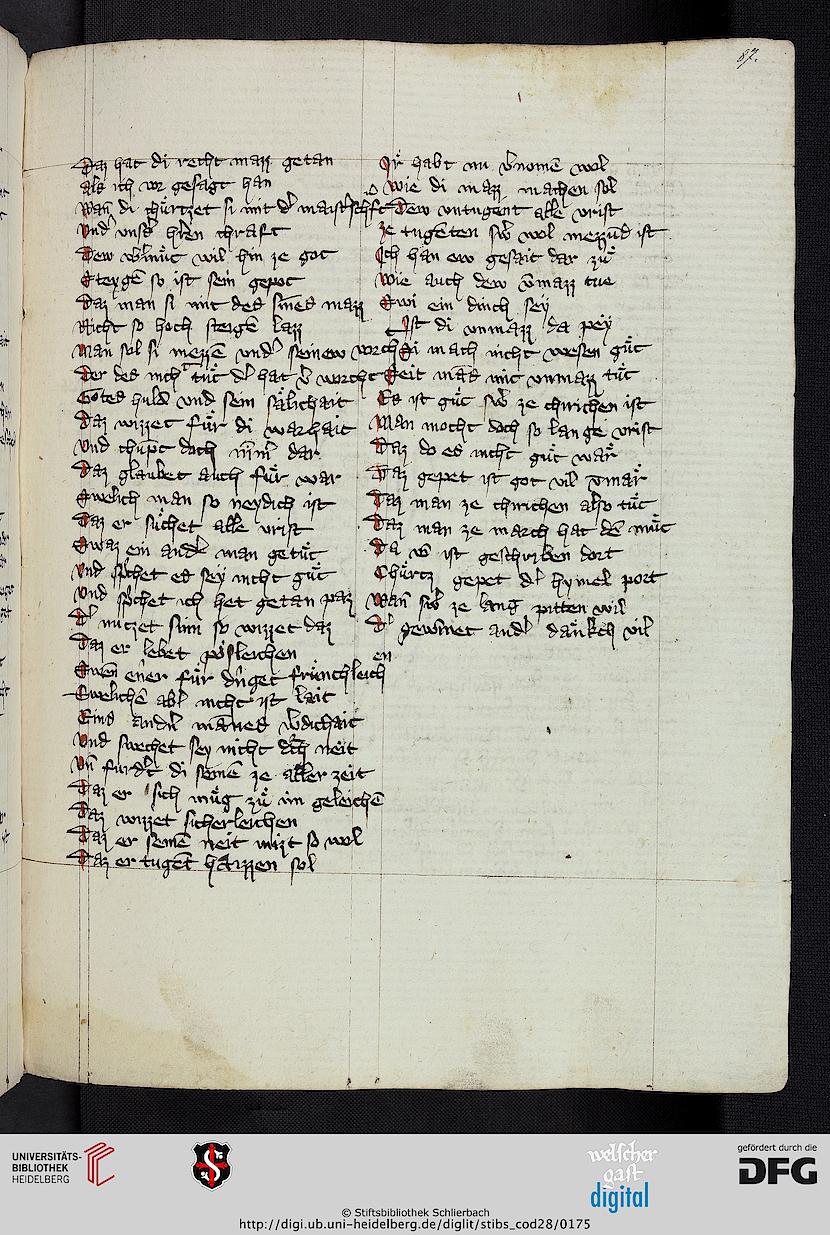 87.
Daz hat di recht mazz getan
als ich vor gesagt han
Wan̄ di chůrtzet si mit d͛ maist͛schaft
Und uns͛ h͛ren chraft
Dew vb͛můt wil hin ze got
Steygē so ist sein gepot
Daz man si mit des sinnes mazz
Nicht so hoch steigē lazz
Man sol si mezzē und͛ seinew worch
Der des nicht tůt d͛ hat v̄ worcht
Gotes huld und sein sälichait
Daz wizzet fůr di warhait
Und chūpt doch nīm͛ dar
Daz glaubet auch fůr war
Swelich man so neydich ist
Daz er sůchet alle vrist
Swaz ein and͛ man getůt
Und sp͛chet es sey nicht gůt
Und sp͛chet ich het getan paz
D͛ nutzet sinn so wizzet daz
Daz er lebet pösleichen
Swen ener fůr dringet frůmchleich
en
Swelichē ab͛ nicht ist lait
Eins and͛n mānes w͛dichait
Und swechet sey nicht durch neit
Uñ furd͛t di seinē ze aller zeit
Daz er sich můg zů im geleichē
Daz wizzet sicherleichen
Daz er seinē neit mizt so wol
Daz er tugēt haizzen sol
Ir habt nu v͛nomē wol
wie di mazz machen sol
Dew untugent alle vrist
ze tugēten sw͛ wol mezzūd ist
Ich han ew gesait dar zů
Wie auch dew v̄mazz tue
Swi ein dinch sey
Ist di unmazz da pey
Si mach nicht wesen gůt
Seit mās mit unmazz tůt
Es ist gůt sw͛ ze chirichen ist
Man mocht doch so lange vrist
Daz do es nicht gůt wär
Daz gepet ist got vil v̄mär
Daz man ze chirichen also tůt
Daz man ze march hat dē můt
Da vō ist geschriben dort
Chůrtz gepet d͛ hymel port
Wan̄ sw͛ ze lang pitten wil
D͛ gewinnet and͛ dänkch vil
UNIVERSITÄTS-
BIBLIOTHEK
HEIDELBERG
welscher
gast
digital
gefördert durch die
DFG
© Stiftsbibliothek Schlierbach
http://digi.ub.uni-heidelberg.de/diglit/stibs_cod28/0175